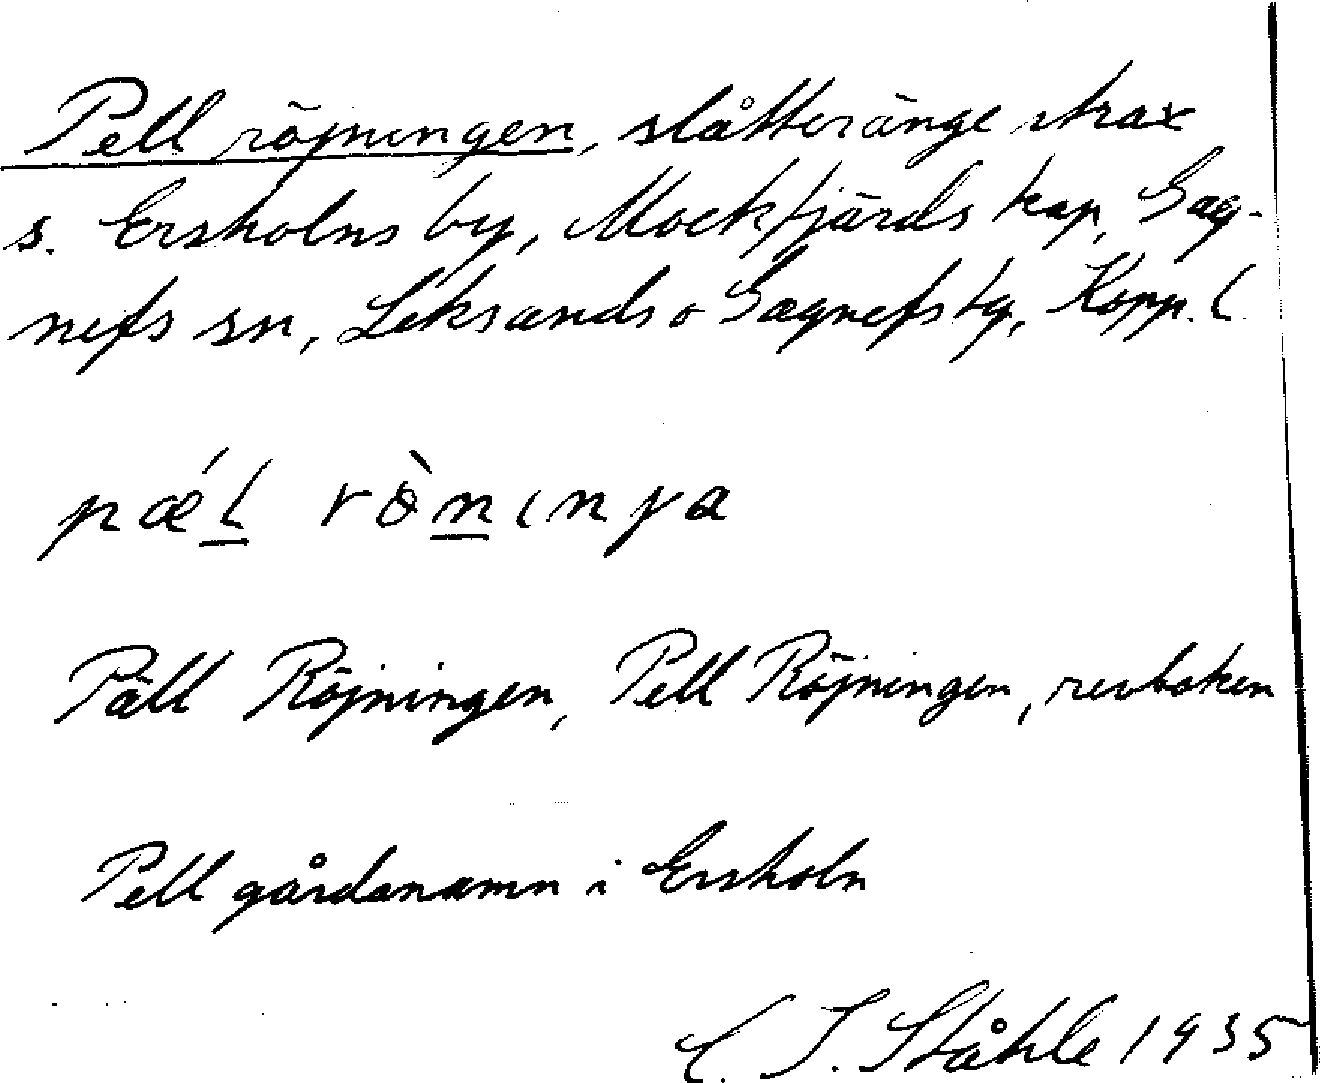 Pell röjningen, slåtteränge strax
s. Ersholns by, Mockfjärds kap, Gag-
nefs sn, Leksands o Gagnefs tg, Kopp. l
pǽl rònɩnga
Päll Röjningen, Pell Röjningen, revboken
Pell gårdsnamn i Ersholn
C. I. Ståhle 1935